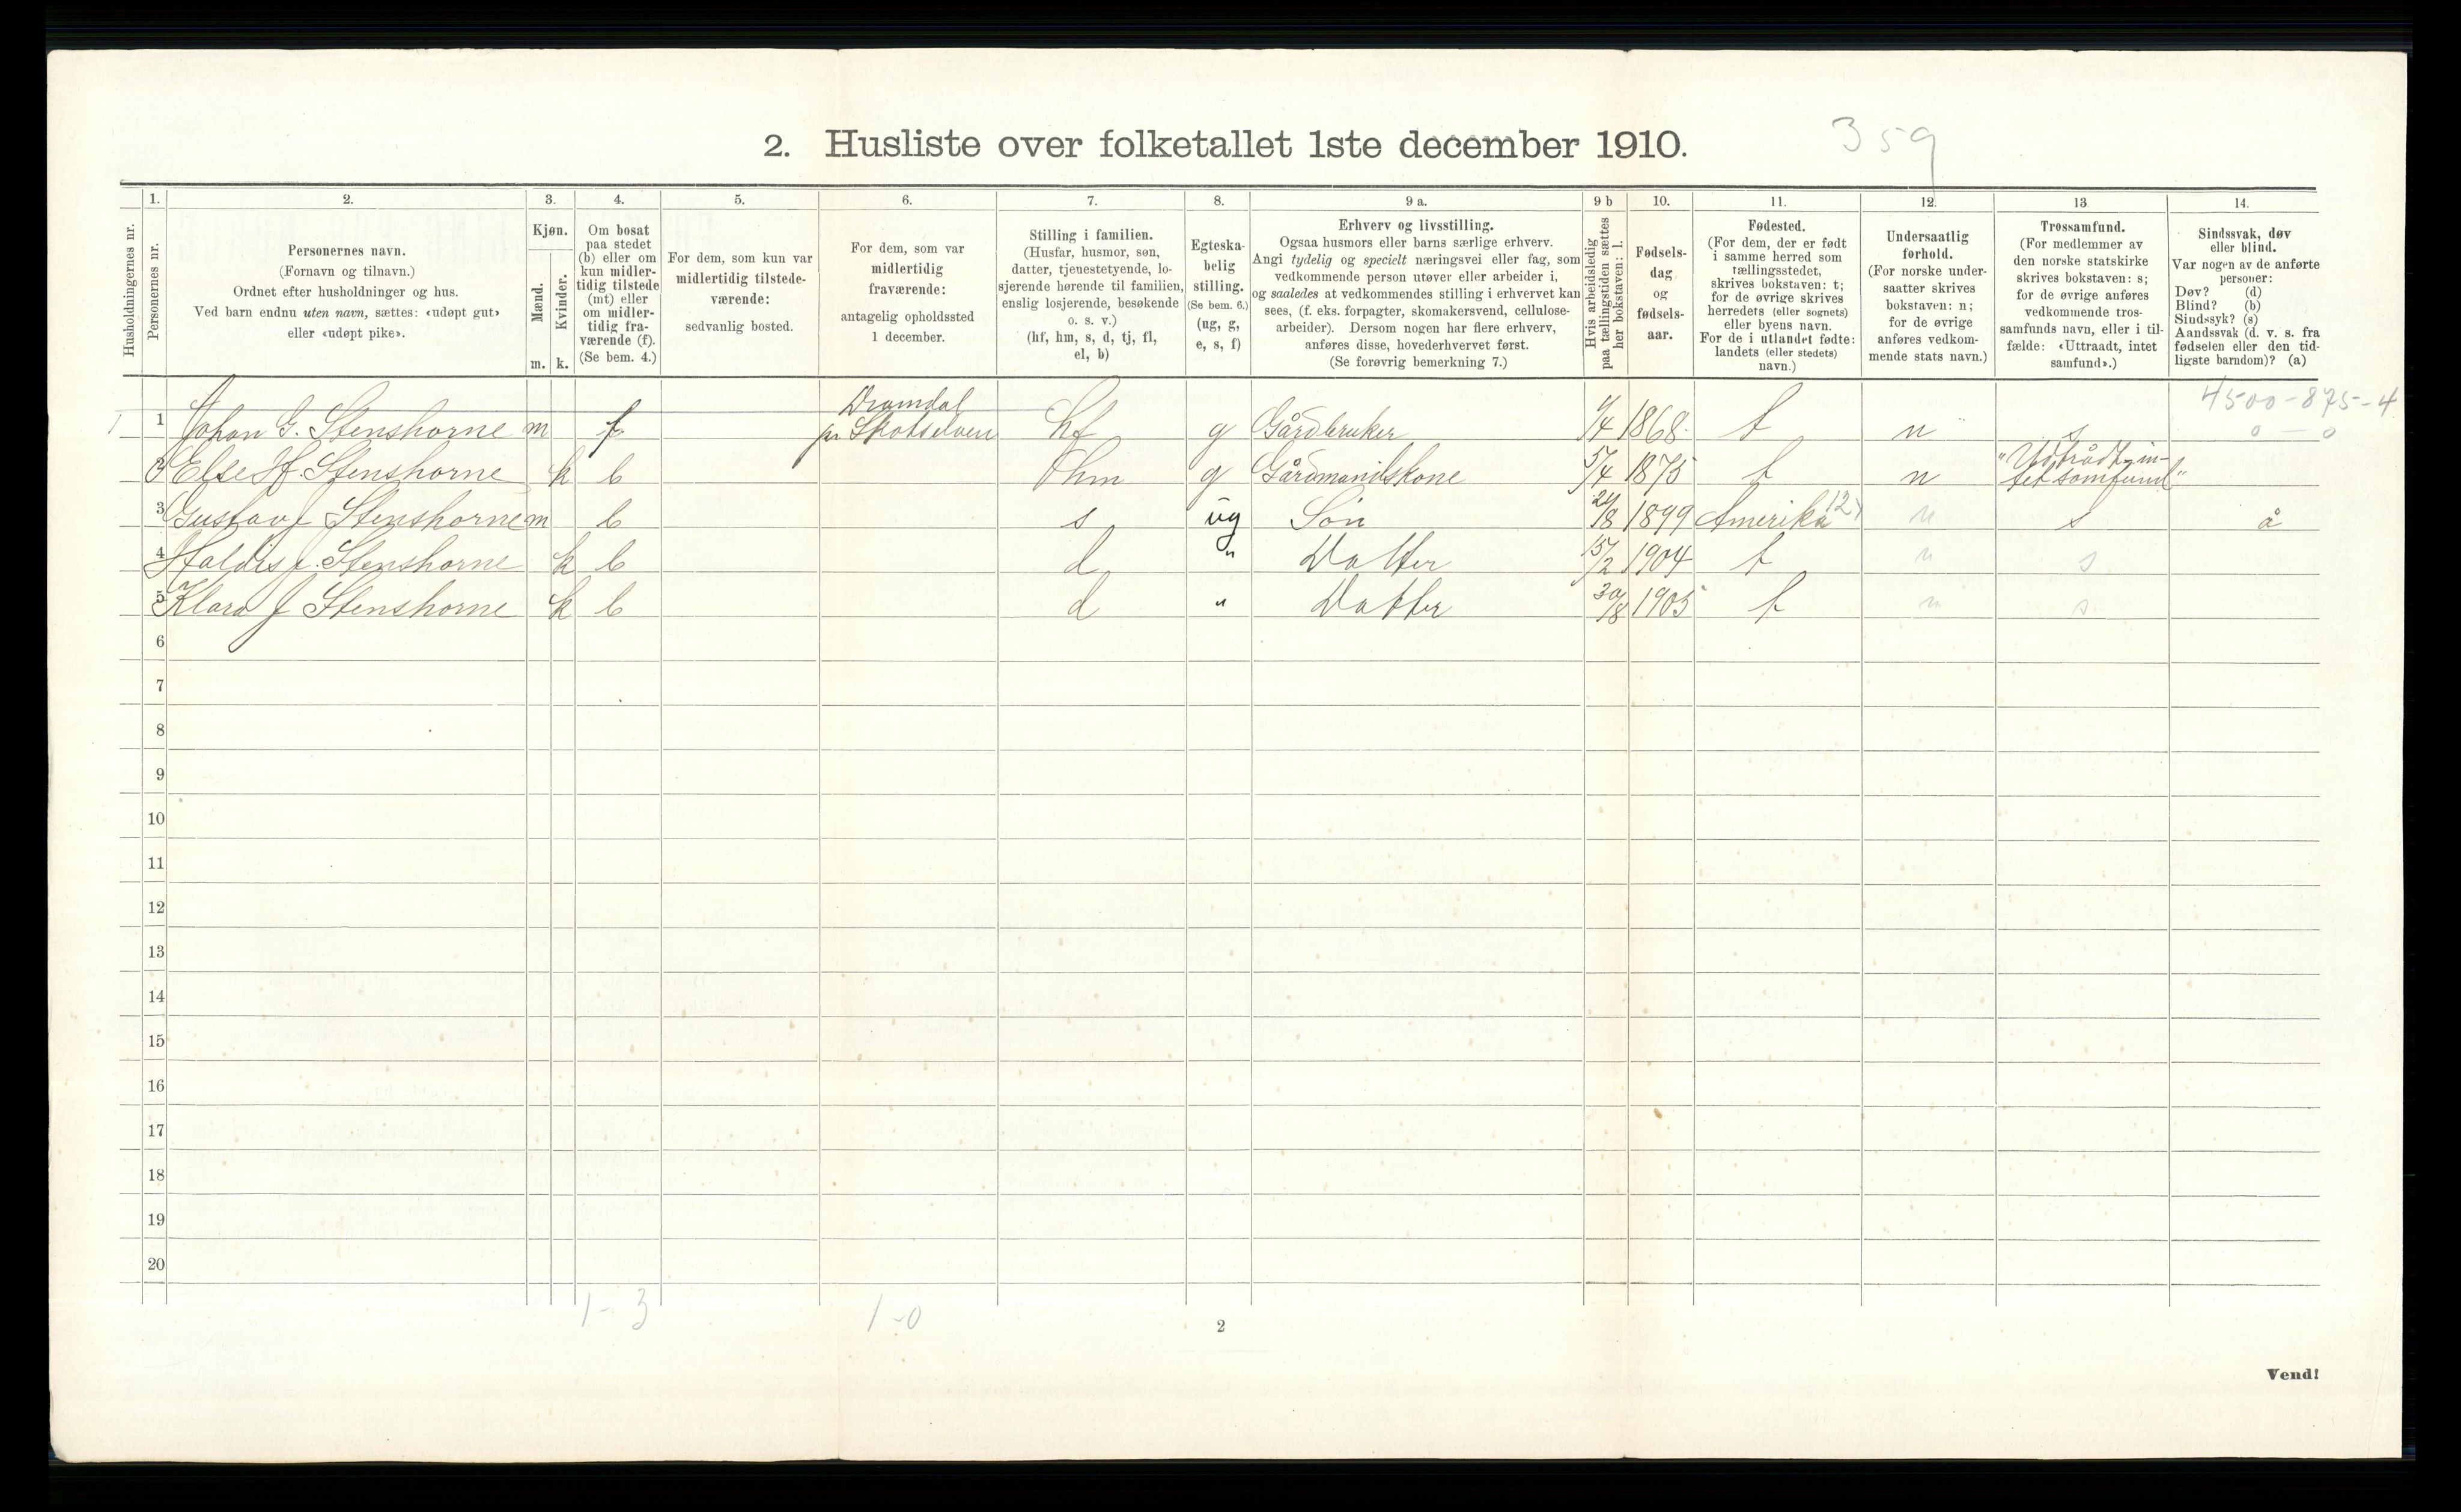 2. Husliste over folketallet 1ste december 1910.
359
Husholdningernes nr.
1.
Personernes nr.
2.
Personernes navn.
(Fornavn og tilnavn.)
Ordnet efter husholdninger og hus.
Ved barn endnu uten navn, sættes: «udøpt gut»
eller «udøpt pike».
3.
Kjøn.
Mænd.
Kvinder.
m. k.
4.
Om bosat
paa stedet
(b) eller om
kun midler-
tidig tilstede
(mt) eller
om midler-
tidig fra-
værende (f).
(Se bem. 4.)
5.
For dem, som kun var
midlertidig tilstede-
værende:
sedvanlig bosted.
6.
For dem, som var
midlertidig
fraværende:
antagelig opholdssted
1 december.
7.
Stilling i familien.
(Husfar, husmor, søn,
datter, tjenestetyende, lo-
sjerende hørende til familien,
enslig losjerende, besøkende
o. s. v.)
(hf, hm, s, d, tj, fl,
el, b)
8.
Egteska-
belig
stilling.
(Se bem. 6.)
(ug, g,
e, s, f)
9 a.
Erhverv og livsstilling.
Ogsaa husmors eller barns særlige erhverv.
Angi tydelig og specielt næringsvei eller fag, som
vedkommende person utøver eller arbeider i,
og saaledes at vedkommendes stilling i erhvervet kan
sees, (f. eks. forpagter, skomakersvend, cellulose-
arbeider). Dersom nogen har flere erhverv,
anføres disse, hovederhvervet først.
(Se forøvrig bemerkning 7.)
9 b
Hvis arbeidsledig
paa tællingstiden sættes
her bokstaven: l.
10.
Fødsels-
dag
og
fødsels-
aar.
11.
Fødested.
(For dem, der er født
i samme herred som
tællingsstedet,
skrives bokstaven: t;
for de øvrige skrives
herredets (eller sognets)
eller byens navn.
For de i utlandet fødte:
landets (eller stedets)
navn.)
12.
Undersaatlig
forhold.
(For norske under-
saatter skrives
bokstaven: n;
for de øvrige
anføres vedkom-
mende stats navn.)
13.
Trossamfund.
(For medlemmer av
den norske statskirke
skrives bokstaven: s;
for de øvrige anføres
vedkommende tros-
samfunds navn, eller i til-
fælde: «Uttraadt, intet
samfund».)
14.
Sindssvak, døv
eller blind.
Var nogen av de anførte
personer:
Døv? (d)
Blind? (b)
Sindssyk? (s)
Aandssvak (d. v. s. fra
fødselen eller den tid-
ligste barndom)? (a)
4500-875-4
0 - 0
Dramdal
1 1 Johan G. Stenshorne m f. pr Skotselven hf g Gårdbruker 4/4 1868 t n s
2 Else H. Stenshorne k b hm g Gårdmandskone 5/4 1875 t n "Udtrådt, in-
tet samfund"
3 Gustav J Stenshorne m b s ug Søn 24/8 1899 Amerika 12 n s å
4 Haldis J. Stenshorne k b d " Datter 15/2 1904 t n s
5 Klara J Stenshorne k b d " Datter 30/8 1905 t n s
6
7
8
9
10
11
12
13
14
15
16
17
18
19
20
1-3
1-0
2
Vend!